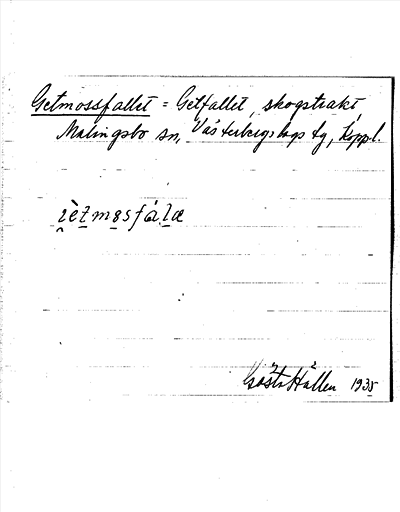 Getmossfallet = Getfallet, skogstrakt
Malingsbo sn, Västerbergslags tg, Koppl.
Gösta Hållen 1935